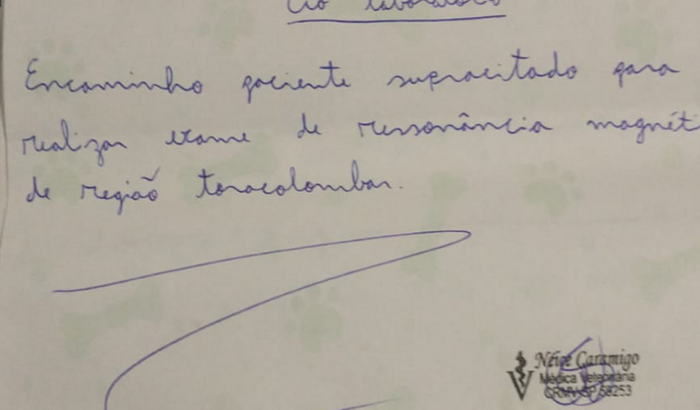 Ao laboratório
Encaminho paciente supracitado para
realizar exame de ressonância magnéti
de região toracolombar.
Neige Caramigo
Médica Veterinária
CRMV-SP 58253